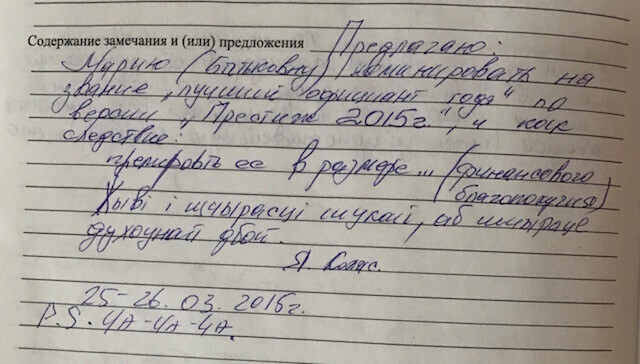 Содержание замечания и (или) предложения Предлагаю:
Марию (Батьковну) номинировать на
звание „лучший официант года“ по
версии „Престиж 2015г.“, и как
следствие:
премировать ее в размере... (финансового
благополучия)
і шчырасці шукай, аб
духоўнай дбай.
Я. Колас.
25-26.03.2015г.
P.S. ЧА-ЧА-ЧА.